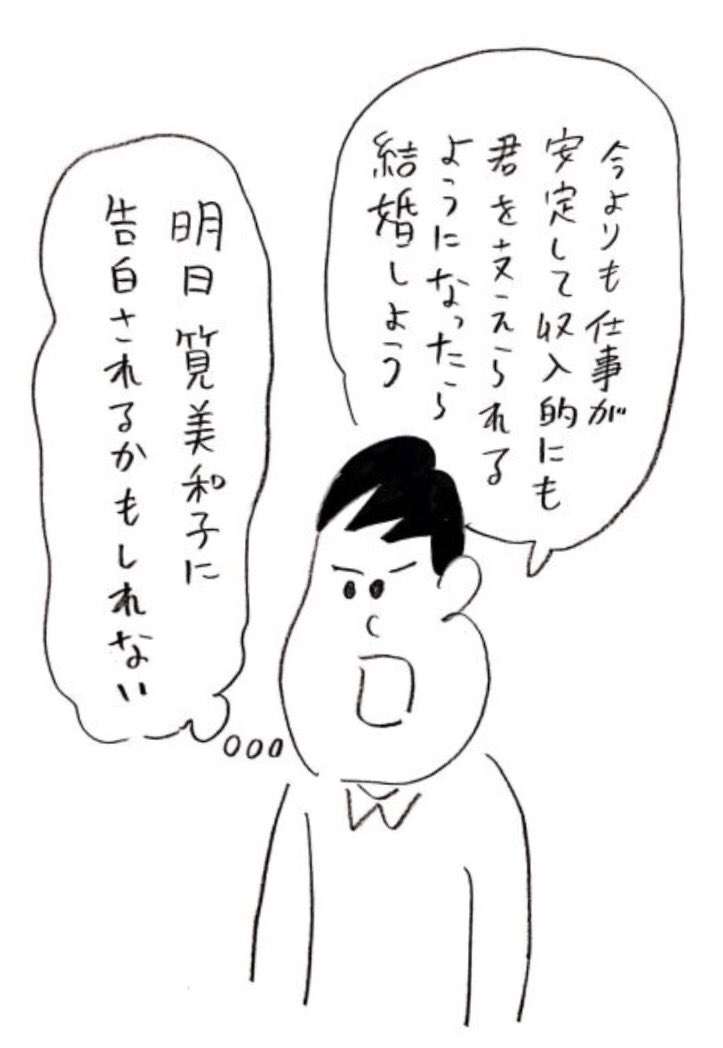 今よりも仕事が
安定して収入的にも
君を支えられる
ようになったら
結婚しよう
明日筧美和子に
告白されるかもしれない